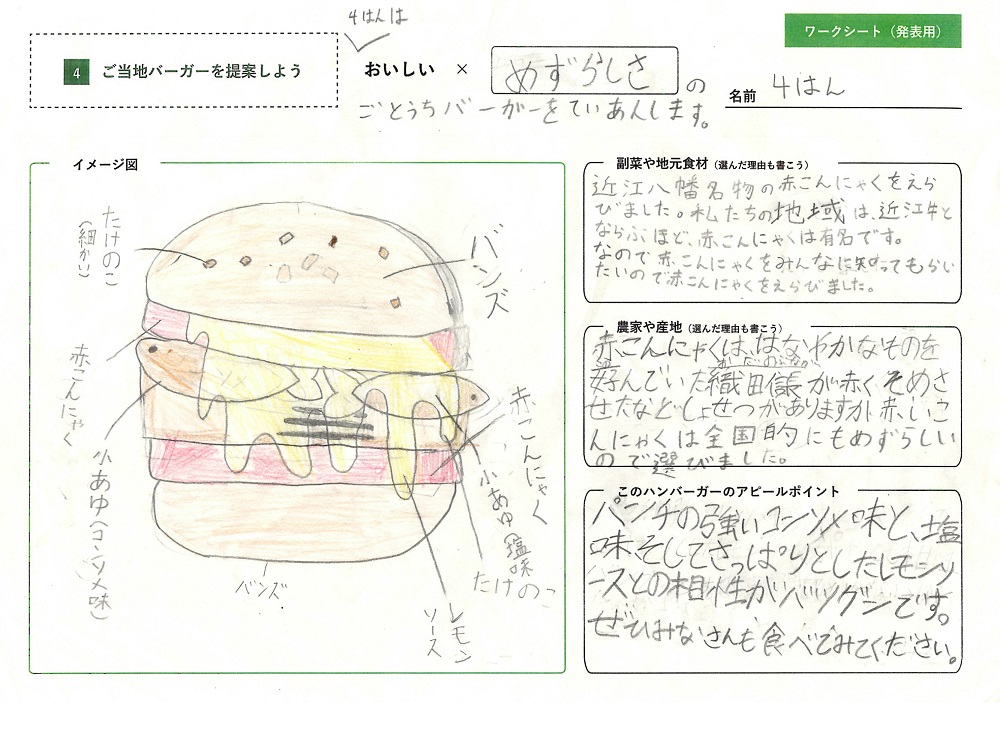 ワークシート（発表用）
4はんは
4 ご当地バーガーを提案しよう
おいしい × めずらしさ の
ごとうちバーガーをていあんします。
名前 4はん
イメージ図
たけのこ
（細かい）
バンズ
赤こんにゃく
小あゆ（コンソメ味）
バンズ
赤こんにゃく
小あゆ（塩味）
たけのこ
レモン
ソース
副菜や地元食材（選んだ理由も書こう）
近江八幡名物の赤こんにゃくをえら
びました。私たちの地域は、近江牛と
ならぶほど、赤こんにゃくは有名です。
なので赤こんにゃくをみんなに知ってもらい
たいので赤こんにゃくをえらびました。
農家や産地（選んだ理由も書こう）
赤こんにゃくは、はなやかなものを
好んでいた織田信長が赤くそめさ
せたなどしょせつがありますが赤いこ
んにゃくは全国的にもめずらしい
ので選びました。
このハンバーガーのアピールポイント
パンチの強いコンソメ味と、塩
味、そしてさっぱりとしたレモンソ
ースとの相性がバツグンです。
ぜひみなさんも食べてみてください。